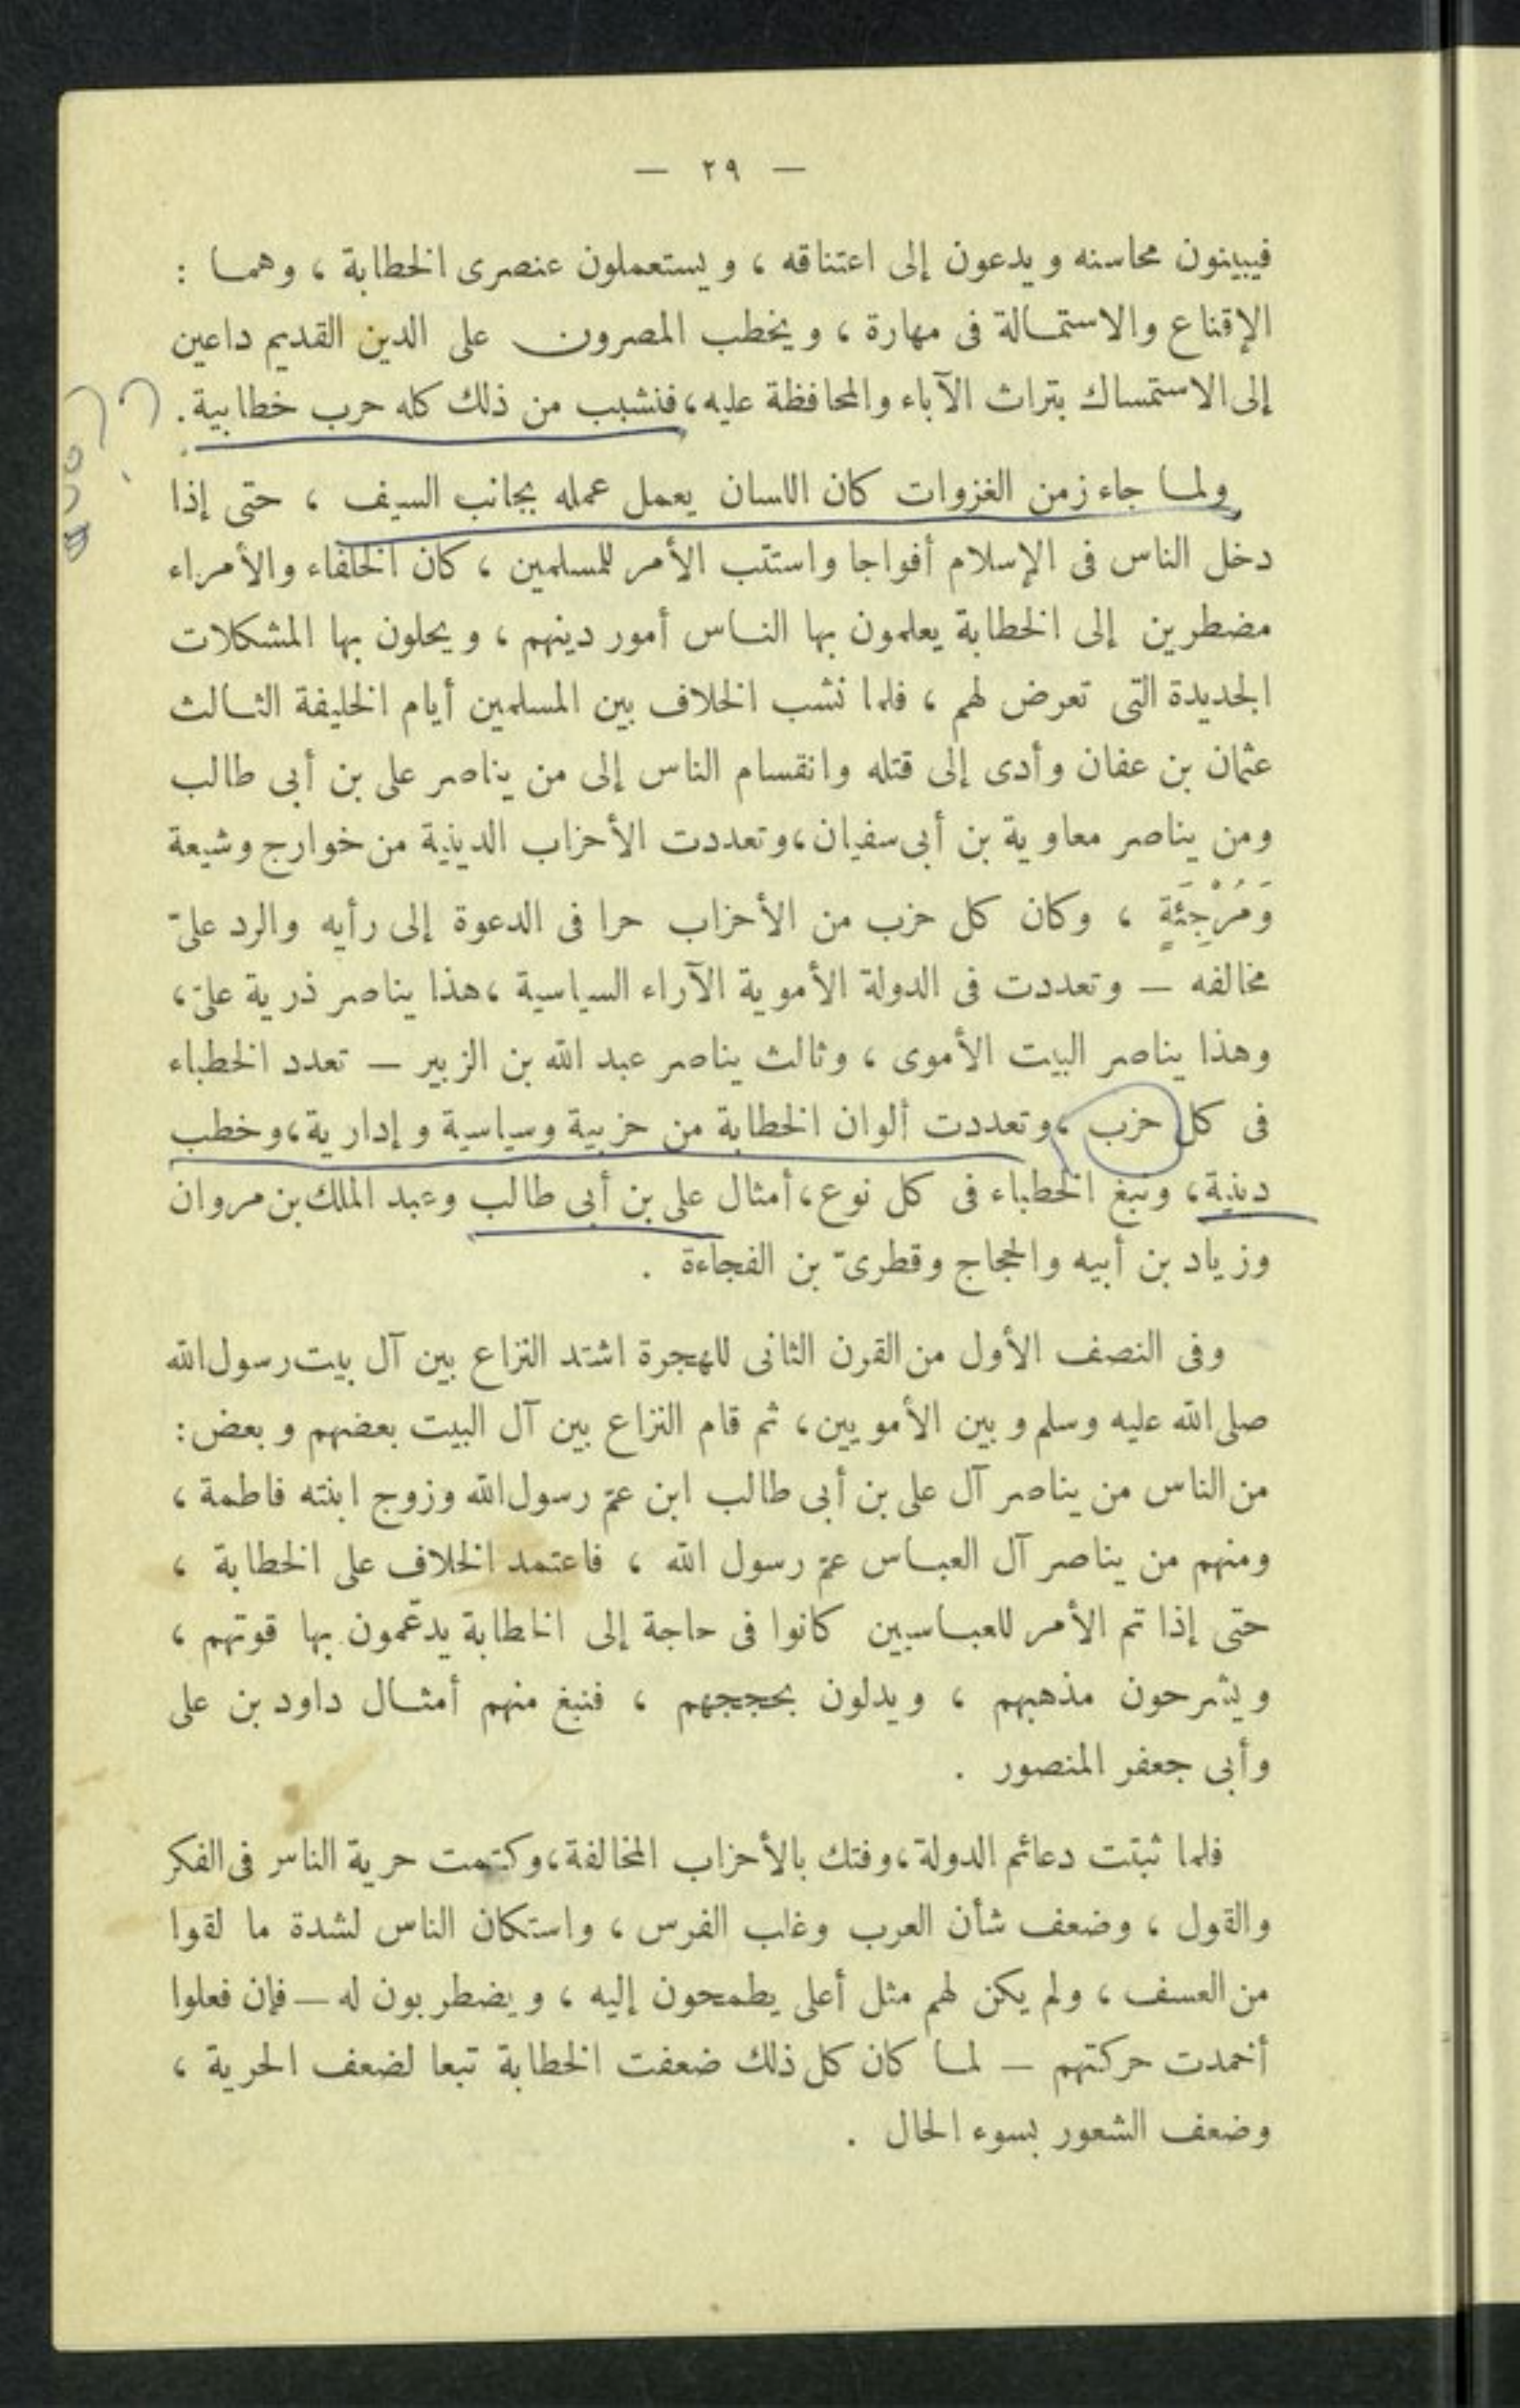 — ٢٩ —
فيبينون محاسنه ويدعون إلى اعتناقه ، ويستعملون عنصرى الخطابة ، وهما :
الإقناع والاستمالة فى مهارة ، ويخطب المصرون على الدين القديم داعين
إلى الاستمساك بتراث الآباء والمحافظة عليه ، فنشبب من ذلك كله حرب خطابية .
ولما جاء زمن الغزوات كان اللسان يعمل عمله بجانب السيف ، حتى إذا
دخل الناس فى الإسلام أفواجا واستتب الأمر للمسلمين ، كان الخلفاء والأمراء
مضطرين إلى الخطابة يعلمون بها الناس أمور دينهم ، ويحلون بها المشكلات
الجديدة التى تعرض لهم ، فلما نشب الخلاف بين المسلمين أيام الخليفة الثالث
عثمان بن عفان وأدى إلى قتله وانقسام الناس إلى من يناصر على بن أبى طالب
ومن يناصر معاوية بن أبى سفيان ، وتعددت الأحزاب الدينية من خوارج وشيعة
وَمُرْجِئَةٍ ، وكان كل حزب من الأحزاب حرا فى الدعوة إلى رأيه والرد علىّ
مخالفه — وتعددت فى الدولة الأموية الآراء السياسية ، هذا يناصر ذرية علىّ ،
وهذا يناصر البيت الأموى ، وثالث يناصر عبد الله بن الزبير — تعدد الخطباء
فى كل حزب ، وتعددت ألوان الخطابة من حزبية وسياسية وإدارية ، وخطب
دينية ، ونبغ الخطباء فى كل نوع ، أمثال على بن أبى طالب وعبد الملك بن مروان
وزياد بن أبيه والحجاج وقطرىّ بن الفجاءة .
وفى النصف الأول من القرن الثانى للهجرة اشتد النزاع بين آل بيت رسول الله
صلى الله عليه وسلم وبين الأمويين ، ثم قام النزاع بين آل البيت بعضهم وبعض :
من الناس من يناصر آل على بن أبى طالب ابن عمّ رسول الله وزوج ابنته فاطمة ،
ومنهم من يناصر آل العباس عمّ رسول الله ، فاعتمد الخلاف على الخطابة ،
حتى إذا تم الأمر للعباسيين كانوا فى حاجة إلى الخطابة يدعّمون بها قوتهم ،
ويشرحون مذهبهم ، ويدلون بحججهم ، فنبغ منهم أمثال داود بن على
وأبى جعفر المنصور .
فلما ثبتت دعائم الدولة ، وفتك بالأحزاب المخالفة ، وكتمت حرية الناس فى الفكر
والقول ، وضعف شأن العرب وغلب الفرس ، واستكان الناس لشدة ما لقوا
من العسف ، ولم يكن لهم مثل أعلى يطمحون إليه ، ويضطربون له — فإن فعلوا
أخمدت حركتهم — لما كان كل ذلك ضعفت الخطابة تبعا لضعف الحرية ،
وضعف الشعور بسوء الحال .